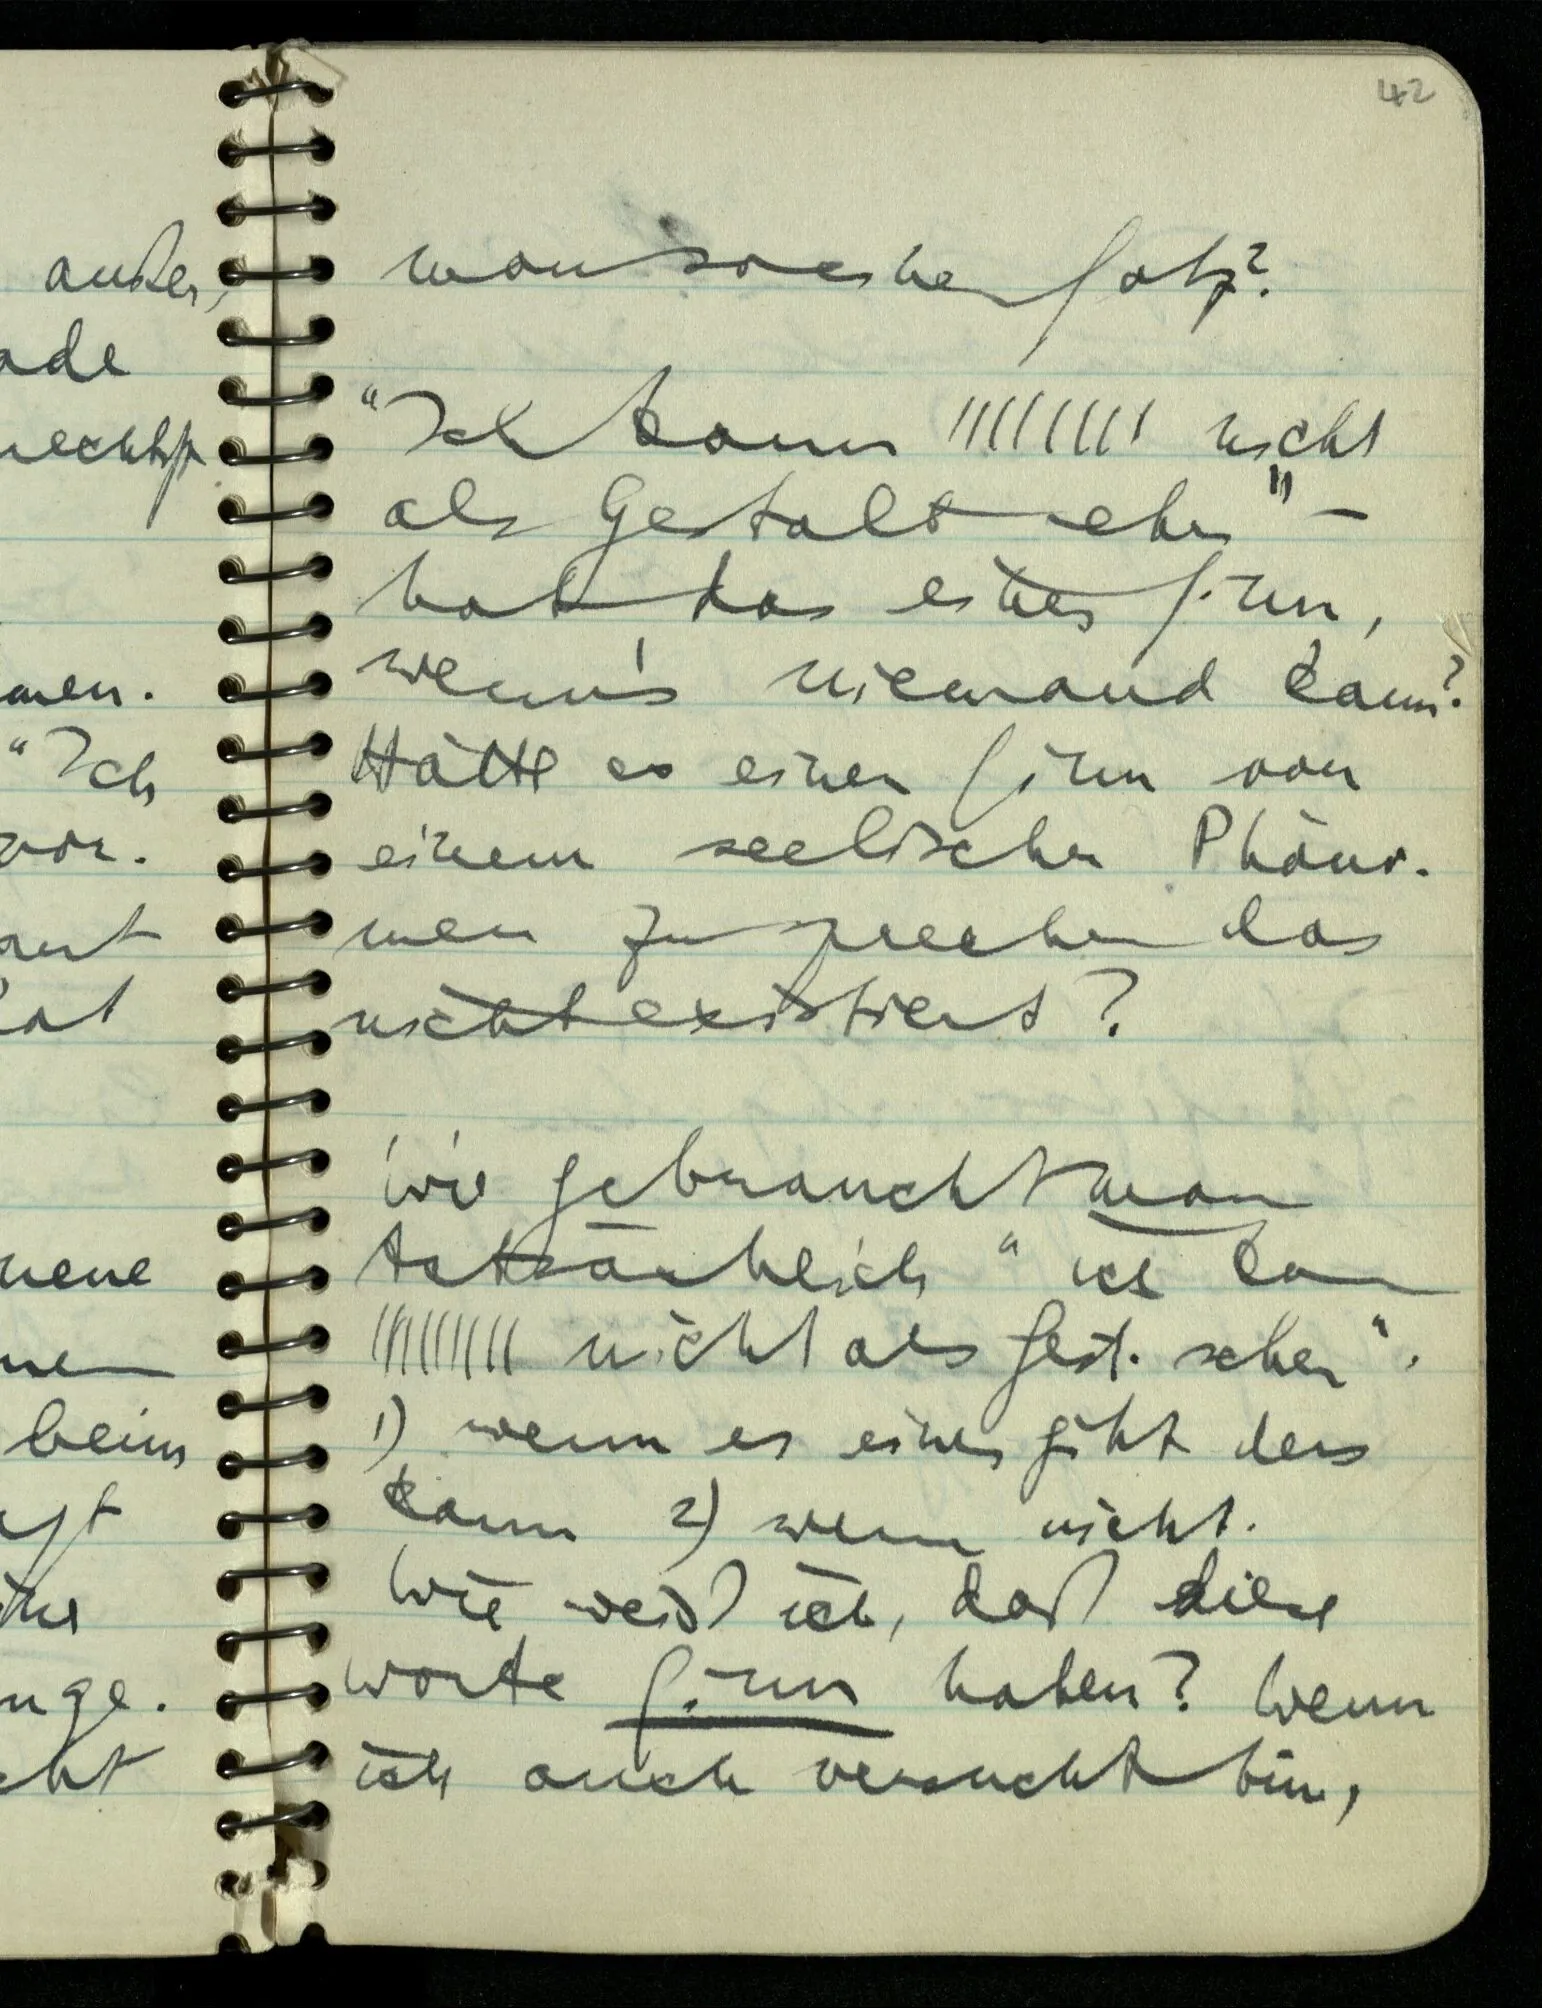 außer,
ade
rechtf
men.
“Ich
vor.
ant
at
nene
nen
beim
ft
nge.
cht
42
man so einen Satz?
“Ich kann ///////// nicht
als Gestalt sehen” –
hat das einen Sinn,
wenn's niemand kann?
Hätte es einen Sinn von
einem seelischen Phäno-
men zu sprechen das
nicht existiert?
Wie gebraucht man
tatsächlich “ich kann
///////// nicht als Gest. sehen”.
1) wenn es einen gibt der's
kann 2) wenn nicht.
Wie weiß ich, daß diese
Worte Sinn haben? Wenn
ich auch versucht bin,